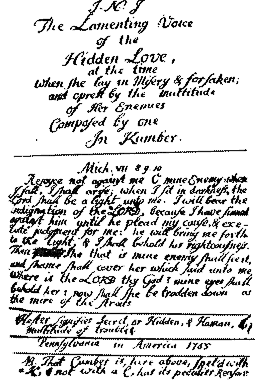 I. N. J
The Lamenting Voice
of the
Hidden Love,
at the time
When she lay in Misery & forsaken;
and oprest by the multitude
of Her Enemies
Composed by one
In Kumber.
Mich. VII 8 9 10
Rejoyce not against me O mine Enemy when
I fall, I shall arise; when I sit in darkness, the
Lord shall be a light unto me. I will bear the
indignation of the LORD, because I have sinned
against him until he plead my cause, & exe-
cute judgment for me: he will bring me forth
to the light, & I shall behold his righteousness.
Then she that is mine enemy shall see it,
and shame shall cover her which said unto me
Where is the LORD thy God: mine eyes shall
behold her: now shall she be trodden down as
the mire of the streets
signifies secret, or Hidden, & Haman,
multitude of troubles
Pensylvania in America 1755
B. That Cumber is here above, Speld with
K: & not with a C. hat its peculiar Reasons